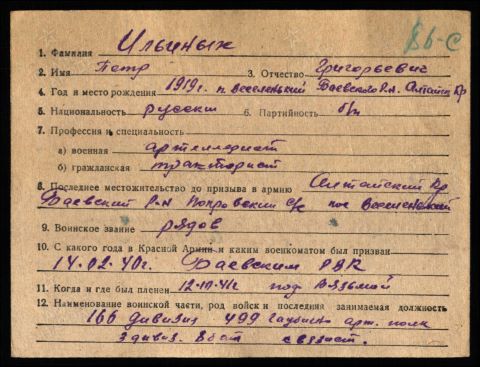 86-С
1. Фамилия Ильиных
2. Имя Петр 3. Отчество Григорьевич
4. Год и место рождения 1919г. п. Вселенский Баевского р-на Алтайск кр
5. Национальность русский 6. Партийность б/п
7. Профессия и специальность
а) военная артиллерист
б) гражданская тракторист
8. Последнее местожительство до призыва в армию Алтайский кр
Баевский р-н Покровский с/с пос
9. Воинское звание рядов
10. С какого года в Красной Армии и каким военкоматом был призван
14.02.40г. Баевским РВК
11. Когда и где был пленен 12.10.41г под Вязьмой
12. Наименование воинской части, род войск и последняя занимаемая должность
166 дивизия 499 гаубично арт. полк
3 дивиз. связист.